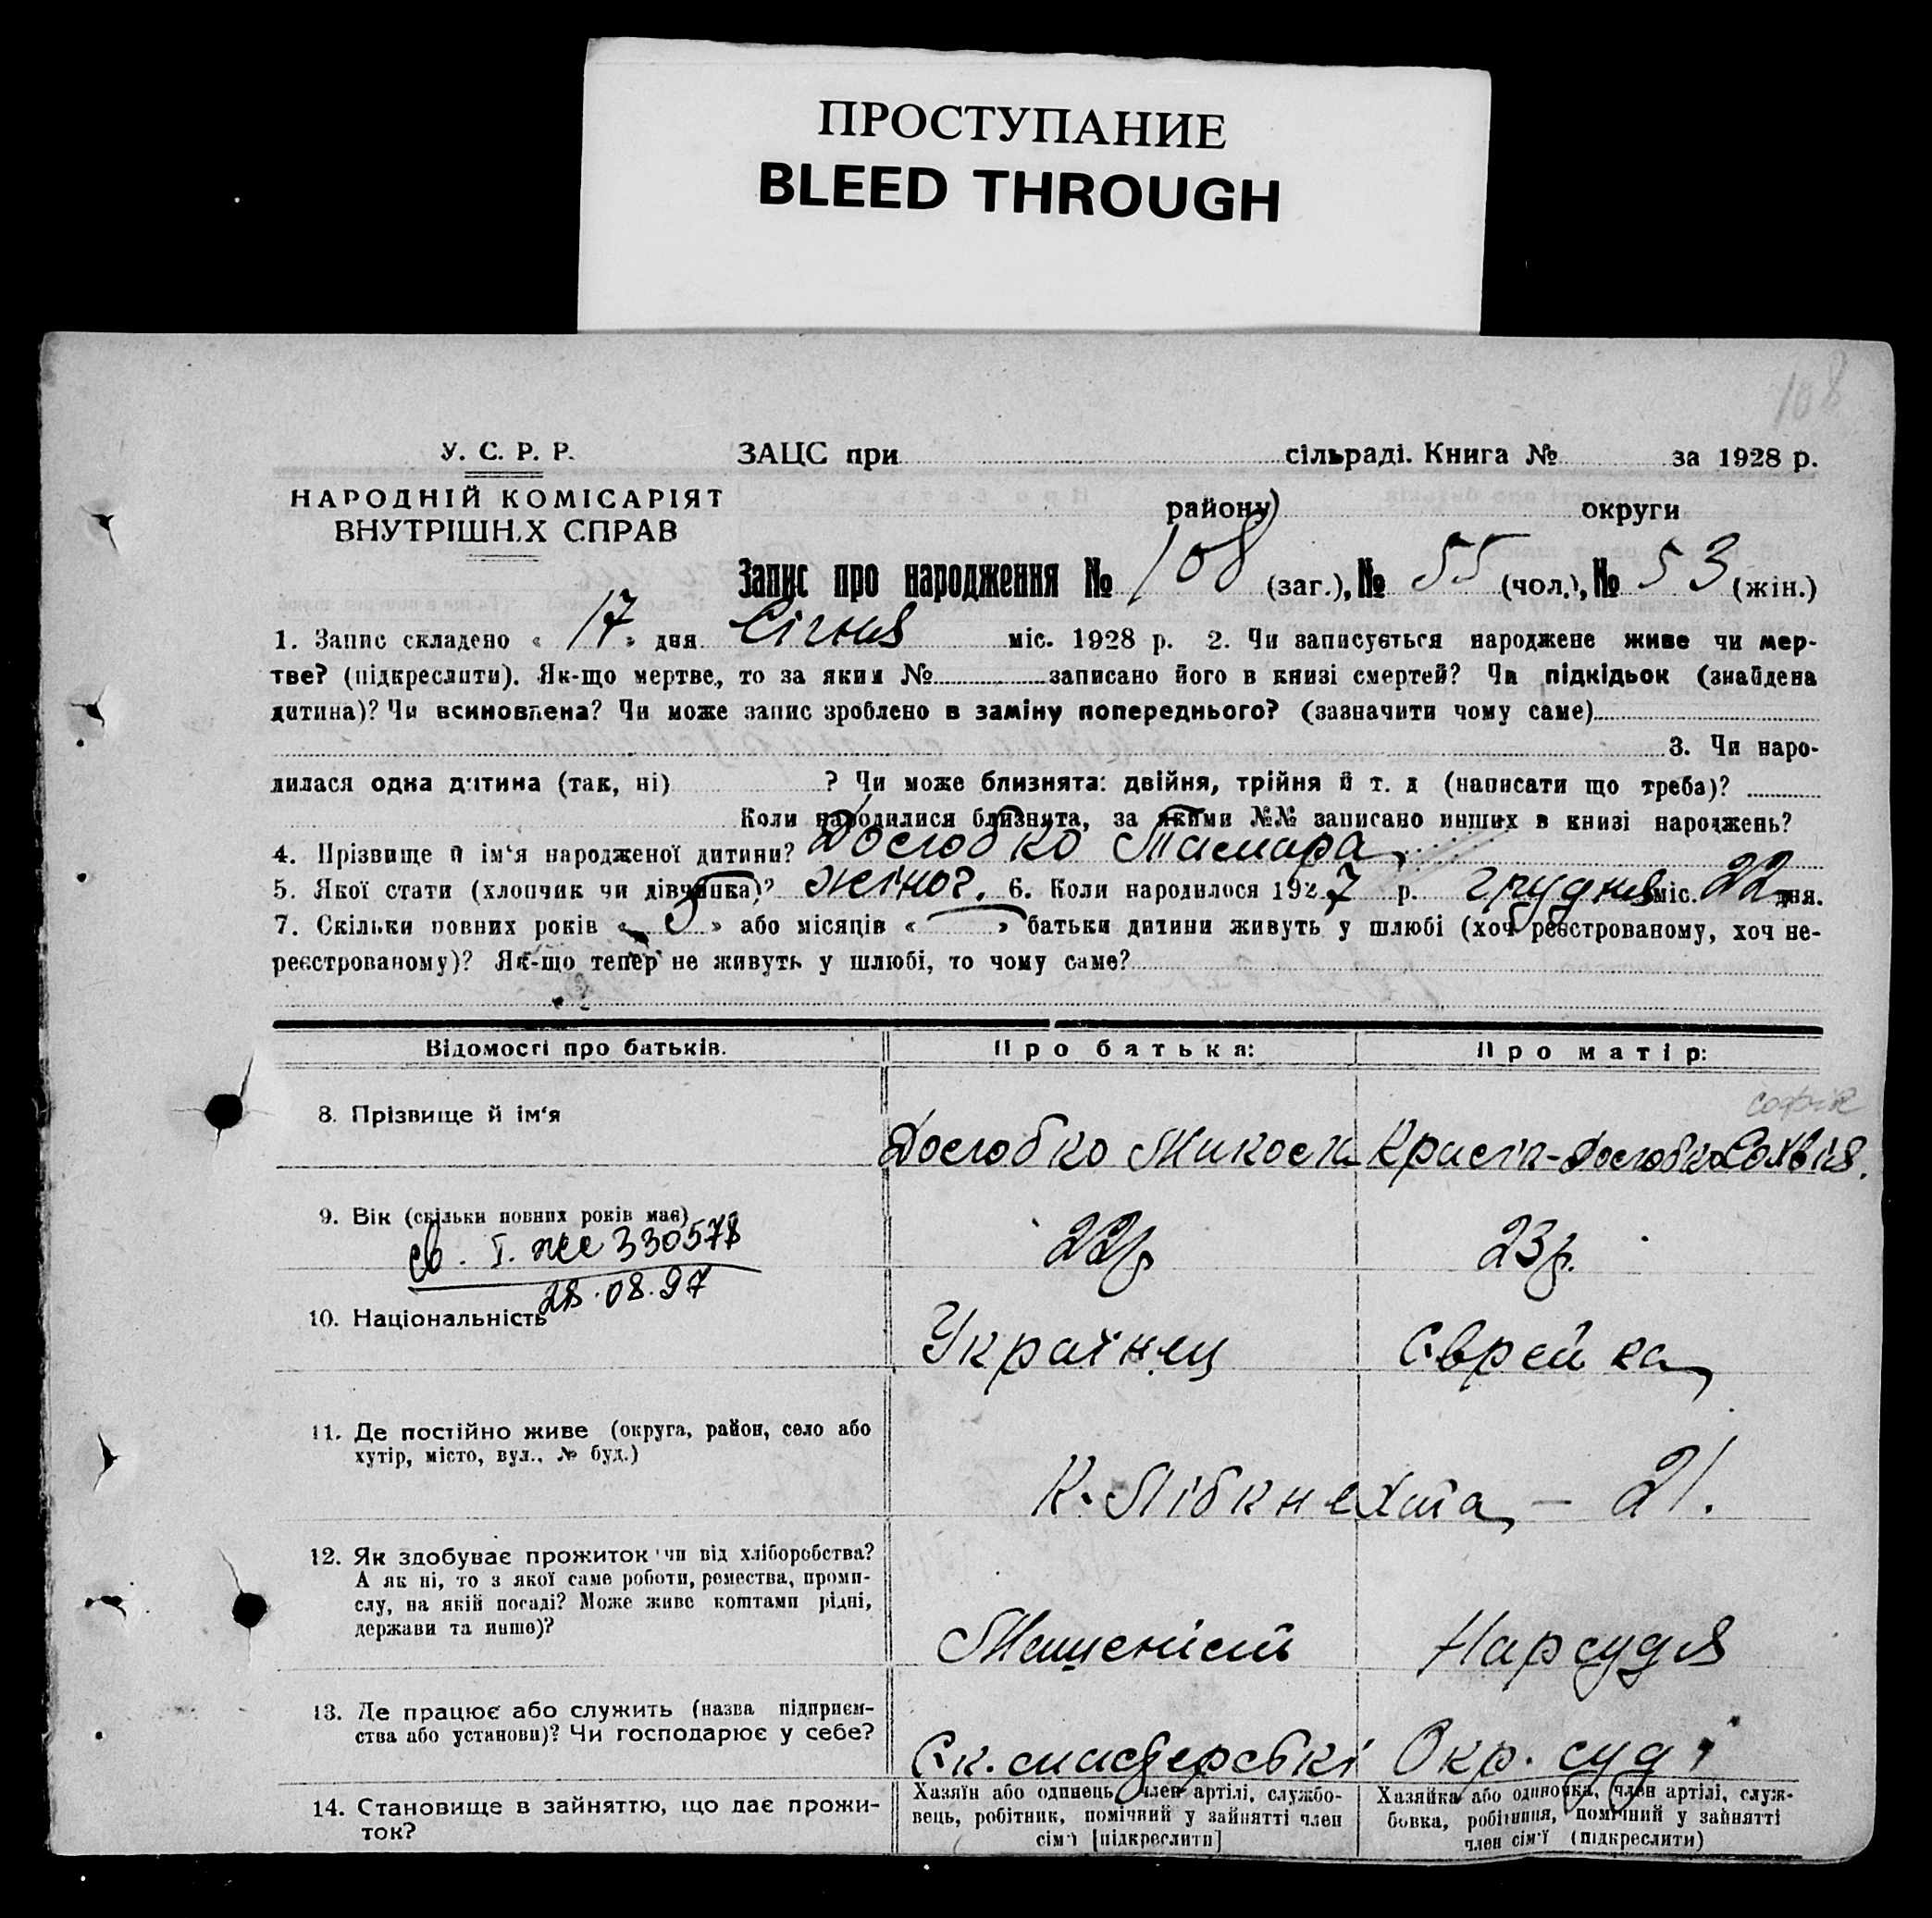 ПРОСТУПАНИЕ
BLEED THROUGH
108
У. С. Р. Р.
НАРОДНІЙ КОМІСАРІЯТ
ВНУТРІШН.Х СПРАВ
ЗАЦС при сільраді. Книга № за 1928 р.
району округи
Запис про народження № 108 (заг.), № 55 (чол.), № 53 (жін.)
1. Запис складено « 17 » дня Січня міс. 1928 р. 2. Чи записується народжене живе чи мер-
тве? (підкреслити). Як-що мертве, то за яким № записано його в книзі смертей? Чи підкідьок (знайдена
дитина)? Чи всиновлена? Чи може запис зроблено в заміну попереднього? (зазначити чому саме)
3. Чи наро-
дилася одна дитина (так, ні) ? Чи може близнята: двійня, трійня й т. д (написати що треба)?
Коли народилися близнята, за якими №№ записано инших в книзі народжень?
4. Прізвище й ім'я народженої дитини? Тамара
5. Якої стати (хлопчик чи дівчинка)? жіноч. 6. Коли народилося 1927 р. грудня міс. 22 дня.
7. Скільки повних років « 3 » або місяців « — » батьки дитини живуть у шлюбі (хоч реєстрованому, хоч не-
реєстрованому)? Як-що тепер не живуть у шлюбі, то чому саме?
Відомості про батьків.
Про батька:
Про матір:
8. Прізвище й ім'я
Микола
Софія
Софія
9. Вік (скільки повних років має)
22 р.
23 р.
св. І. 330578
28.08.97
10. Національність
Українец
Єврейка
11. Де постійно живе (округа, район, село або
хутір, місто, вул., № буд.)
К. Лібкнехта — 21.
12. Як здобуває прожиток чи від хліборобства?
А як ні, то з якої саме роботи, ремества, проми-
слу, на якій посаді? Може живе коштами рідні,
держави та инше)?
Машеніст
Нарсудя
13. Де працює або служить (назва підприєм-
ства або установи)? Чи господарює у себе?
майстерські
Окр. суд
14. Становище в зайняттю, що дає прожи-
ток?
Хазяїн або одинець, член артілі, службо-
вець, робітник, помічний у зайнятті член
сім'ї [підкреслити]
Хазяйка або одиночка, член артілі, служ-
бовка, робітниця, помічний у зайнятті
член сім'ї (підкреслити)